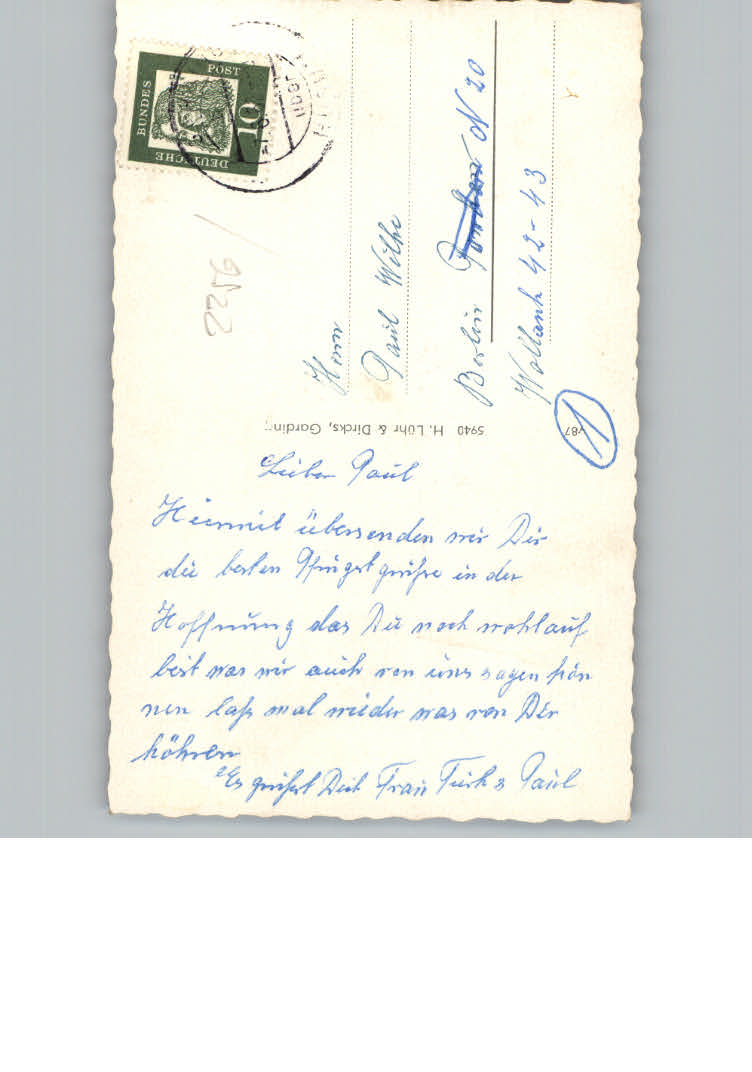 Lieber Paul
Hiermit übersenden wir Dir
die besten Pfingstgrüße in der
Hoffnung das Du noch wohlauf
bist was wir auch von uns sagen kön
nen laß mal wieder was von Dir
höhren
Es grüßt Dich Frau Turk & Paul
Herrn
Paul Wilke
Berlin N 20
Wollank 42-43
5940 H. Lühr & Dircks, Garding
1
2522
DEUTSCHE
BUNDES
POST
10